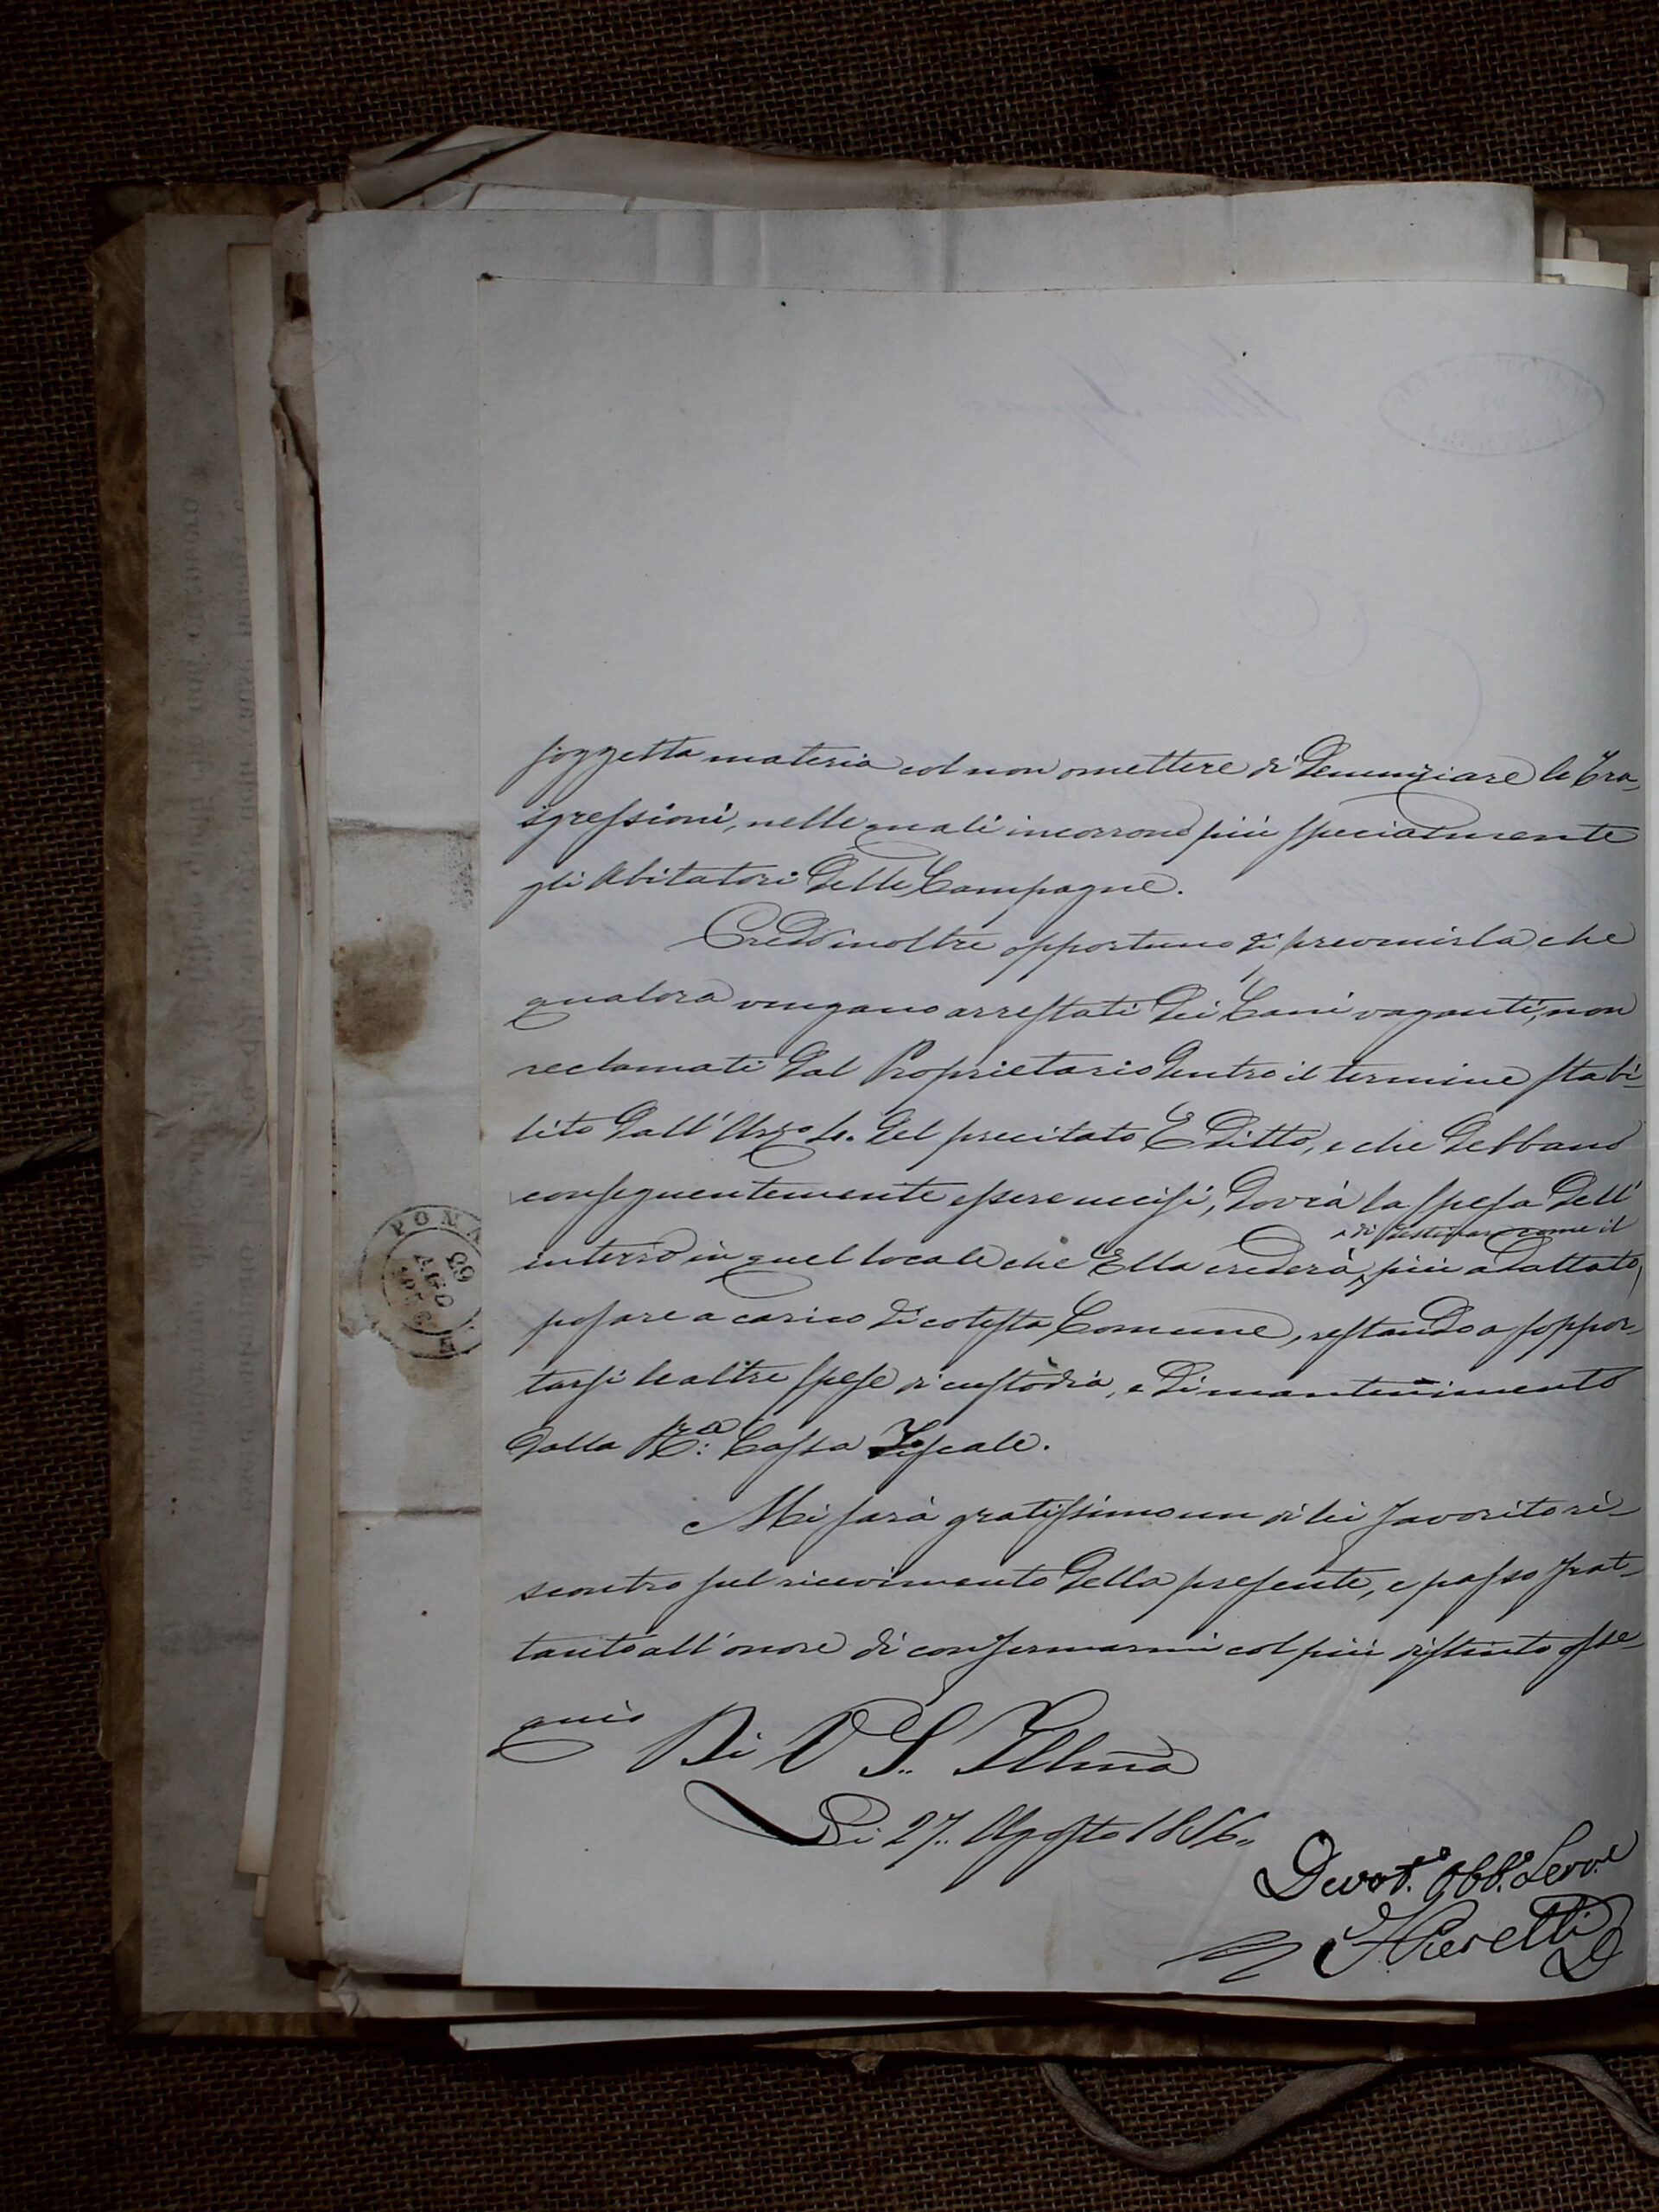 soggetta materia col non omettere di denunziare le tra-
sgressioni, nelle quali incorrono più specialmente
gli abitatori delle Campagne.
Credo inoltre opportuno di prevenirla, che
qualora vengano arrestati dei Cani vaganti, non
reclamati dal Proprietario dentro il termine stabi-
lito dall' del precitato Editto, e che debbano
conseguentemente essere uccisi, dovrà la spesa dell'
di destinare come il
interro in quel locale che Ella crederà più adattato,
posare a carico di cotesta Comune, restando a soppor-
tarsi le altre spese di custodia, e di mantenimento
dalla R:ª Cassa Fiscale.
Mi sarà gratissimo un di lei favorito ri-
scontro sul ricevimento della presente, e passo frat-
tanto all'onore di confermarmi col più distinto osse-
quio
Di V S. Illma
Li 27. Agosto 1856.
Devot.º Obb.º Serv.e
29
AGO